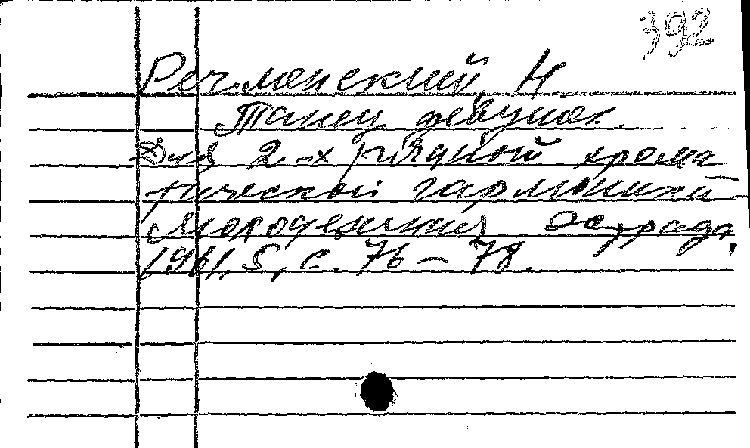 392
Речменский, Н.
Танец девушек.
Для 2-х рядной хрома
тической гармоники
Молодежная эстрада,
1961, 5, с. 76 – 78.